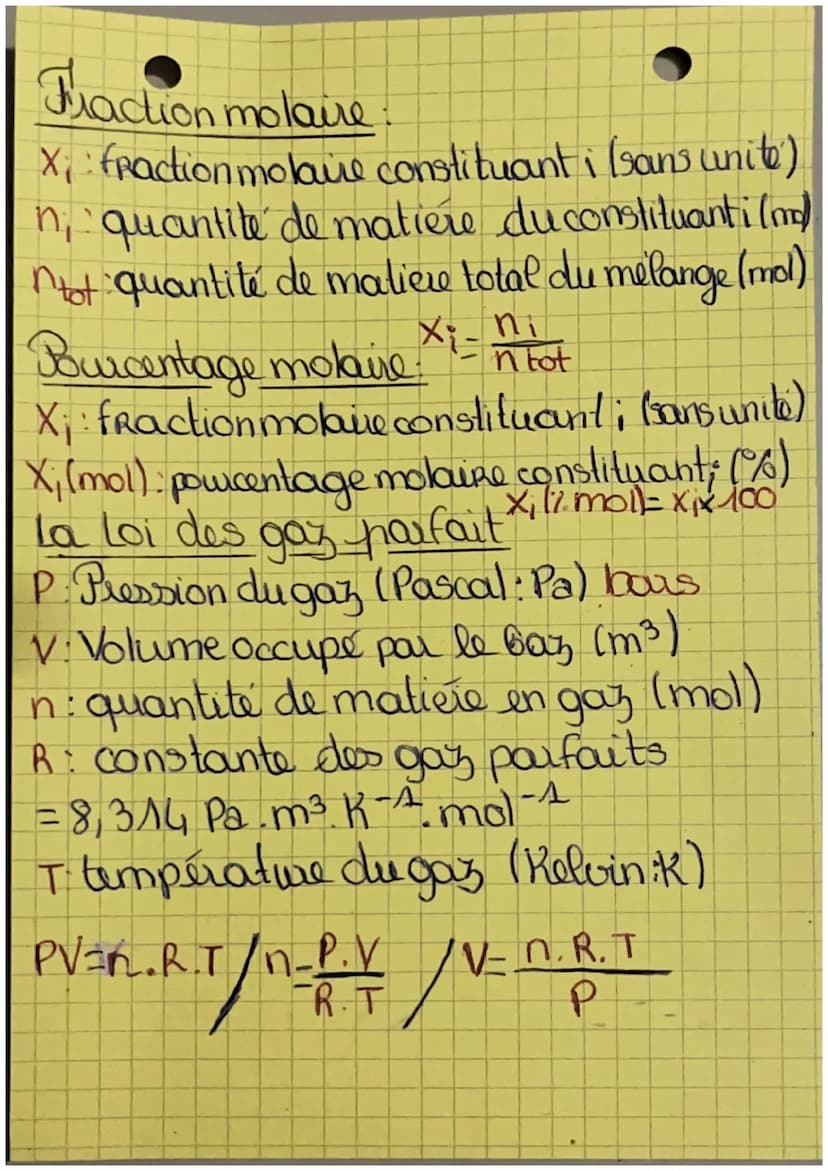 Fraction molaire :
xi : fraction molaire constituant i (sans unité)
ni : quantité de matière du constituant i (mol)
ntot : quantité de matière total du mélange (mol)
xi = ni / n tot
Pourcentage molaire :
xi : fraction molaire constituant i (sans unité)
xi (mol) : pourcentage molaire constituant i (%)
xi (% mol) = xi x 100
La loi des gaz parfait
P : Pression du gaz (Pascal : Pa) bars
V : Volume occupé par le Gaz (m³)
n : quantité de matière en gaz (mol)
R : constante des gaz parfaits
= 8,314 Pa . m³. K⁻¹. mol⁻¹
T : température du gaz (Kelvin : K)
PV = n . R . T / n = P . V / R . T / V = n . R . T / P